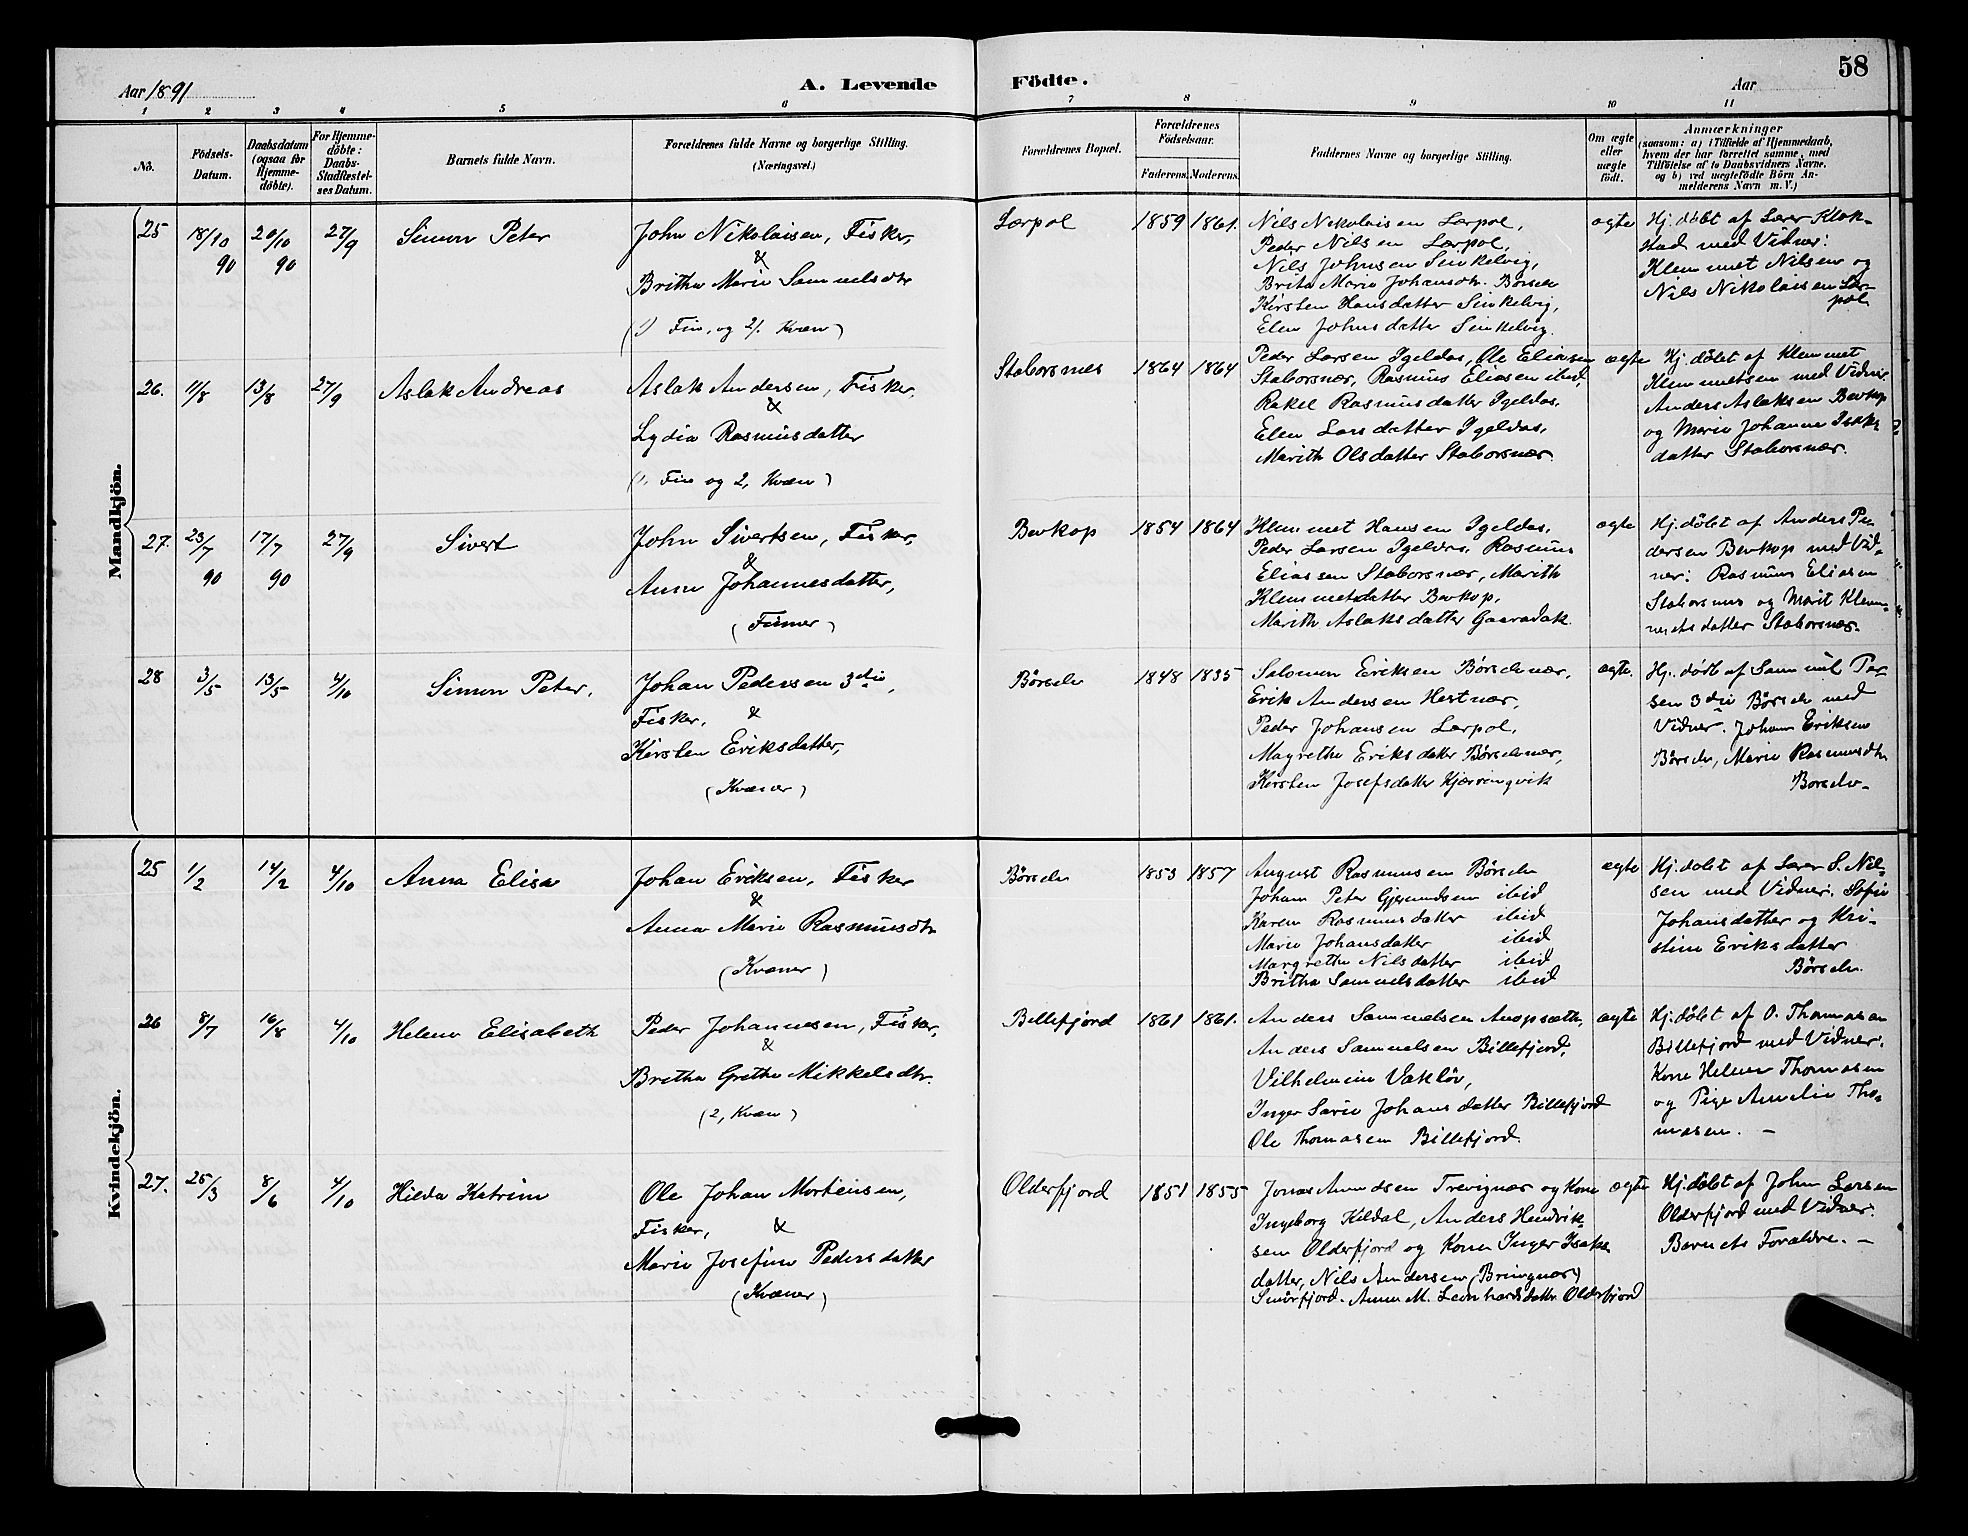 58
Aar 1891
A. Levende Födte.
Aar
1 2 3 4 5 6 7 8 9 10 11
No.
Födsels-Datum.
Daabsdatum (ogsaa for Hjemme-döbte).
For Hjemme-döbte: Daabs-Stadfæstel-ses Datum.
Barnets fulde Navn.
Forældrenes fulde Navne og borgerlige Stilling.
(Næringsvei.)
Forældrenes Bopæl.
Forældrenes Födselsaar.
Faderens. Moderens.
Faddernes Navne og borgerlige Stilling.
Om ægte eller uægte födt.
Anmærkninger
(saasom: a) i Tilfælde af Hjemmedaab,
hvem der har forrettet samme, med
Tilföielse af to Daabsvidners Navne,
og b) ved uægtefödte Börn An-
melderens Navn m. V.)
Mandkjön.
25 18/10 90 20/10 90 27/9 Simon Peter
John Nikolaisen, Fisker,
&
Britha Marie Samuelsdtr
(1) Fin, og 2/. Kvæn)
Lærpol 1859 1861.
Nils Nikolaisen Lærpol,
Peder Nilsen Lærpol,
Nils Johnsen Smkelvig,
Brita Marie Johansdtr. Börselv
Kirsten Hansdatter Smkelvig,
Elen Johnsdatter Smkelvig.
ægte
Hj.döbt af Lærer Klok-
stad med Vidner:
Klemmet Nilsen og
Nils Nikolaisen Lær-
pol
26. 11/8 13/8 27/9 Aslak Andreas
Aslak Andersen, Fisker,
&
Lydia Rasmusdatter
(1, Fin og 2, Kvæn)
Staborsnes 1864 1864
Peder Larsen Igeldas, Ole Eliasen
Staborsnær, Rasmus Eliasen ibid,
Rakel Rasmusdatter Igeldas,
Elen Larsdatter Igeldas,
Marith Olsdatter Staborsnær.
ægte
Hj.döbt af Klemmet
Klemmetsen med Vidner
Anders Aslaksen Bevkop
og Marie Johanne Isaks-
datter Staborsnær.
27. 23/7 90 17/7 90 27/9 Sivert
John Sivertsen, Fisker,
&
Anne Johannesdatter,
(Finner)
Bevkop 1854 1864
Klemmet Hansen Igeldas,
Peder Larsen Igeldas, Rasmus
Eliassen Staborsnær, Marith
Klemmetsdatter Bevkop,
Marith Aslaksdatter Gaaradak.
ægte
Hj.döbt af Anders Pe-
dersen Bevkop med Vid-
ner: Rasmus Eliasen
Staborsnes og Marit Klem-
metsdatter Staborsnær.
28 3/5 13/5 4/10 Simon Peter,
Johan Pedersen 3die,
Fisker, &
Kirsten Eriksdatter,
(Kvæner)
Börselv 1848 1835
Salomon Eriksen Börselvnær,
Erik Andersen Hestnær,
Peder Johansen Lærpol,
Magrethe Eriksdatter Börselvnær,
Kirsten Josefsdatter Kjærringvik
ægte.
Hj.döbt af Samuel Per-
sen 3die Börselv med
Vidner: Johan Eriksen
Börselv, Marie Rasmusdtr
Börselv-
Kvindekjön.
25 1/2 14/2 4/10 Anna Elisa
Johan Eriksen, Fisker
&
Anna Marie Rasmusdtr
(Kvæner)
Börselv 1853 1857
August Rasmusen Börselv
Johan Peter Gjermundsen ibid
Karen Rasmusdatter ibid
Marie Johansdatter ibid
Margrethe Nilsdatter ibid
Britha Samuelsdatter ibid
ægte
Hj.döbt af Lærer S. Nil-
sen med Vidner: Sofie
Johansdatter og Kri-
stine Eriksdatter
Börselv.
26 8/7 16/8 4/10 Helene Elisabeth
Peder Johannesen, Fisker,
&
Britha Grethe Mikkelsdtr.
(2, Kvæn)
Billefjord 1861 1861.
Anders Samuelsen
Anders Samuelsen Billefjord,
Vilhelmine
Inger Sarie Johansdatter Billefjord
Ole Thomasen Billefjord.
ægte
Hj.döbt af O. Thomasen
Billefjord med Vidner:
Kone Helene Thomasen
og Pige Amelie Tho-
masen. -
27. 25/3 8/6 4/10 Hilda Katrine
Ole Johan Mortensen,
Fisker, &
Marie Josefine Pedersdatter
(Kvæner)
Olderfjord 1851 1855
Jonas Amundsen Trevignær og Kone
Ingeborg Kildal, Anders Hendrik-
sen Olderfjord og Kone Inger Isaks-
datter, Nils Andersen (Bringnær)
Smörfjord. Anne M. Leonhardsdatter Olderfjord
ægte
Hj.döbt af John Larsen
Olderfjord med Vidner:
Barnets Forældre. -